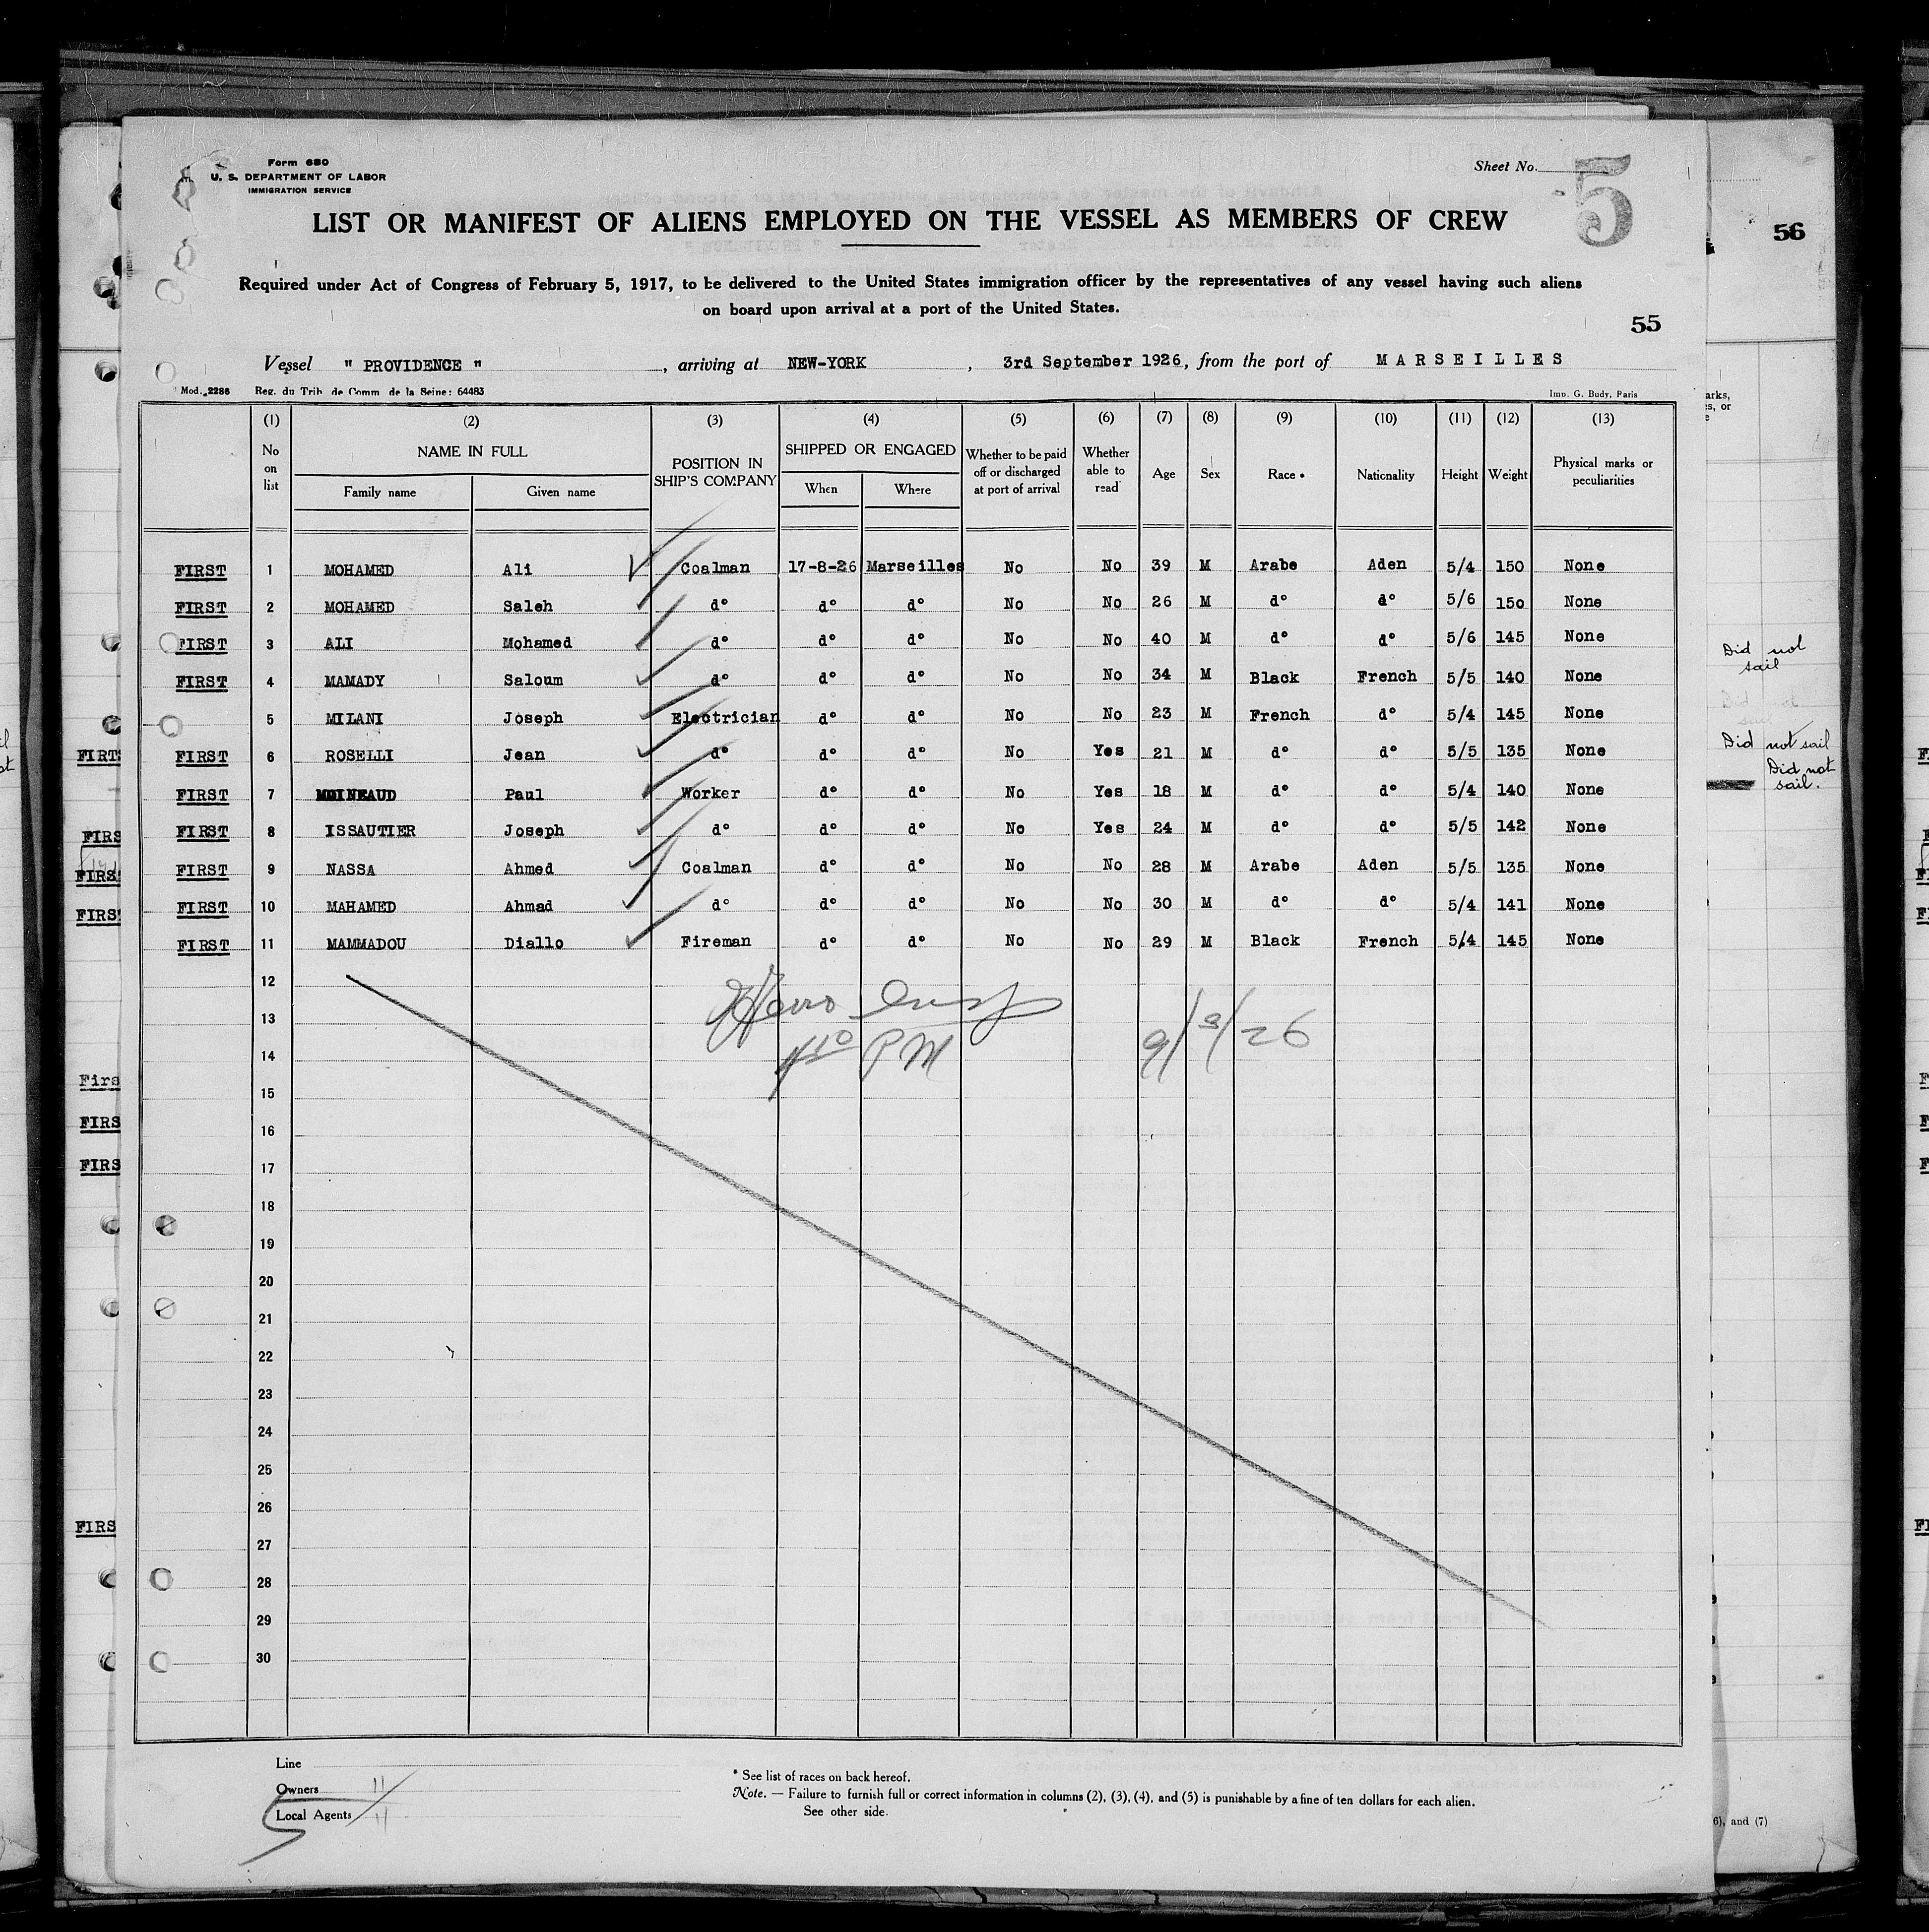 Form 680
U. S. DEPARTMENT OF LABOR
IMMIGRATION SERVICE
Sheet No. 5
LIST OR MANIFEST OF ALIENS EMPLOYED ON THE VESSEL AS MEMBERS OF CREW
56
Required under Act of Congress of February 5, 1917, to be delivered to the United States immigration officer by the representatives of any vessel having such aliens
on board upon arrival at a port of the United States.
55
Vessel " PROVIDENCE " , arriving at NEW-YORK , 3rd September 1926, from the port of MARSEILLES
Mod. 2286 Reg. du Trib. de Comm. de la Seine: 64483 Imp. G. Budy, Paris
(1) (2) (3) (4) (5) (6) (7) (8) (9) (10) (11) (12) (13)
No on list NAME IN FULL Family name Given name POSITION IN SHIP'S COMPANY SHIPPED OR ENGAGED When Where Whether to be paid off or discharged at port of arrival Whether able to read Age Sex Race * Nationality Height Weight Physical marks or peculiarities
FIRST 1 MOHAMED Ali Coalman 17-8-26 Marseilles No No 39 M Arabe Aden 5/4 150 None
FIRST 2 MOHAMED Saleh d° d° d° No No 26 M d° d° 5/6 150 None
FIRST 3 ALI Mohamed d° d° d° No No 40 M d° d° 5/6 145 None
FIRST 4 MAMADY Saloum d° d° d° No No 34 M Black French 5/5 140 None
5 MILANI Joseph Electrician d° d° No No 23 M French d° 5/4 145 None
FIRST 6 ROSELLI Jean d° d° d° No Yes 21 M d° d° 5/5 135 None
FIRST 7 MOINEAUD Paul Worker d° d° No Yes 18 M d° d° 5/4 140 None
FIRST 8 ISSAUTIER Joseph d° d° d° No Yes 24 M d° d° 5/5 142 None
FIRST 9 NASSA Ahmed Coalman d° d° No No 28 M Arabe Aden 5/5 135 None
FIRST 10 MAHAMED Ahmad d° d° d° No No 30 M d° d° 5/4 141 None
FIRST 11 MAMMADOU Diallo Fireman d° d° No No 29 M Black French 5/4 145 None
12
13
14 PM 9/3/26
15
16
17
18
19
20
21
22
23
24
25
26
27
28
29
30
Line
Owners 11
Local Agents 11
* See list of races on back hereof.
Note. — Failure to furnish full or correct information in columns (2), (3), (4), and (5) is punishable by a fine of ten dollars for each alien.
See other side.
Did not
sail
Did not sail
Did not
sail.
6), and (7)
FIRTS
FIRS
FIRS
FIRST
Firs
FIRS
FIRS
FIRS